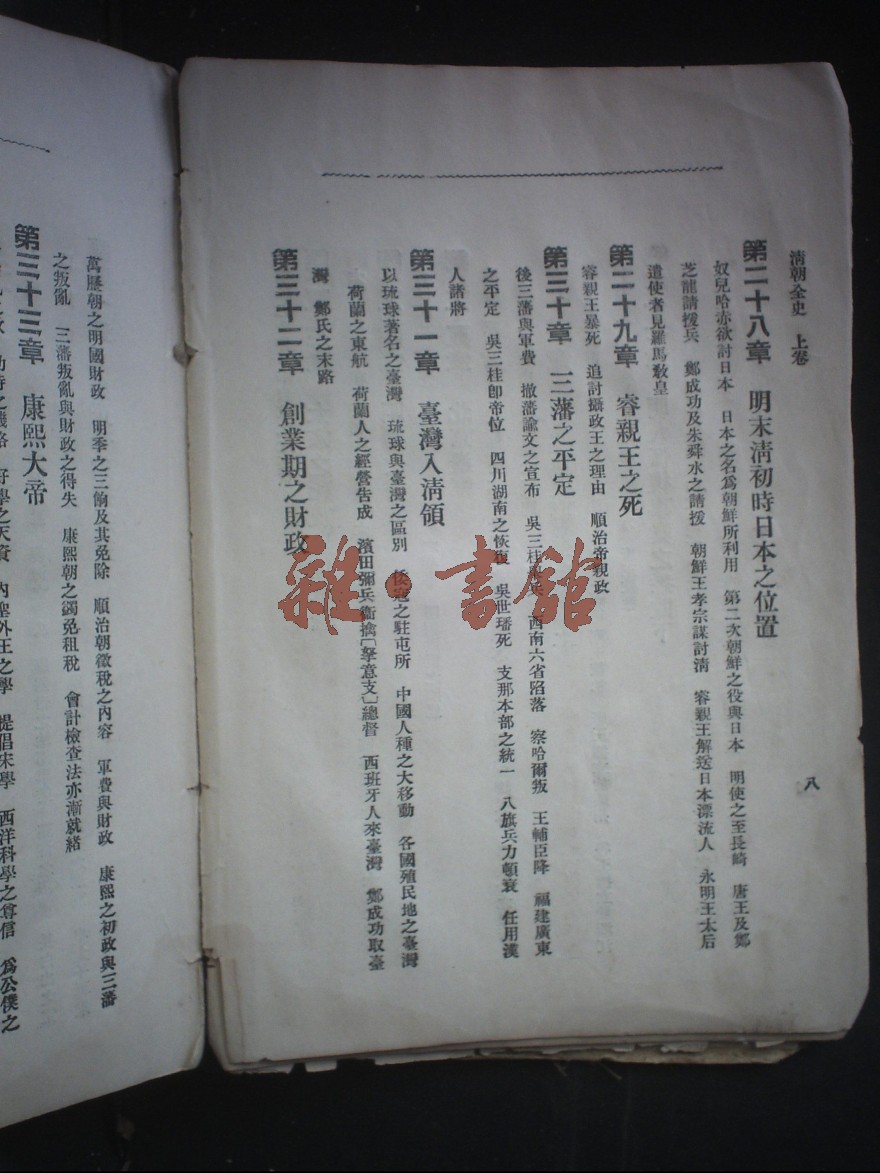 清朝全史 上卷
八
第二十八章 明末淸初時日本之位置
奴兒哈赤欲討日本 日本之名爲朝鮮所利用 第二次朝鮮之役與日本 明使之至長崎 唐王及鄭
芝龍請援兵 鄭成功及朱舜水之請援 朝鮮王孝宗謀討淸 睿親王解送日本漂流人 永明王太后
遣使者見羅馬敎皇
第二十九章 睿親王之死
睿親王暴死 追討攝政王之理由 順治帝親政
第三十章 三藩之平定
後三藩與軍費 撤藩諭文之宣布 吳三桂 西南六省陷落 察哈爾叛 王輔臣降 福建廣東
之平定 吳三桂卽帝位 四川湖南之恢復 吳世璠死 支那本部之統一 八旗兵力頓衰 任用漢
人諸將
第三十一章 臺灣入淸領
以琉球著名之臺灣 琉球與臺灣之區別 倭寇之駐屯所 中國人種之大移動 各國殖民地之臺灣
荷蘭之東航 荷蘭人之經營吿成 濱田彌兵衞擒〔拏意支〕總督 西班牙人來臺灣 鄭成功取臺
灣 鄭氏之末路
第三十二章 創業期之財政
萬曆朝之明國財政 明季之三餉及其免除 順治朝徵稅之內容 軍費與財政 康熙之初政與三藩
之叛亂 三藩叛亂與財政之得失 康熙朝之蠲免租稅 會計檢查法亦漸就緖
第三十三章 康熙大帝
幼時之機略 好學之天資 內聖外王之學 提倡宋學 西洋科學之尊信 爲公僕之
雜·書館